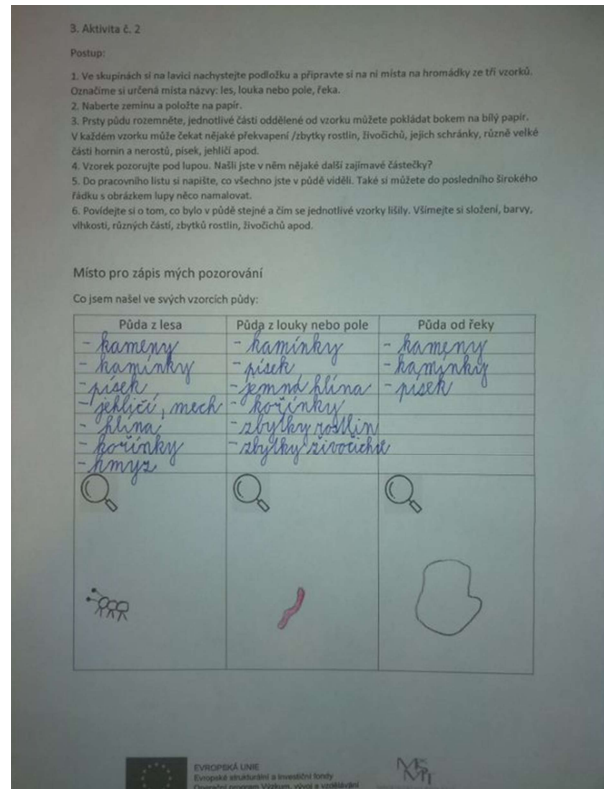 3. Aktivita č. 2
Postup:
1. Ve skupinách si na lavici nachystejte podložku a připravte si na ni místa na hromádky ze tří vzorků.
Označíme si určená místa názvy: les, louka nebo pole, řeka.
2. Naberte zeminu a položte na papír.
3. Prsty půdu rozemněte, jednotlivé části oddělené od vzorku můžete pokládat bokem na bílý papír.
V každém vzorku může čekat nějaké překvapení /zbytky rostlin, živočichů, jejich schránky, různě velké
části hornin a nerostů, písek, jehličí apod.
4. Vzorek pozorujte pod lupou. Našli jste v něm nějaké další zajímavé částečky?
5. Do pracovního listu si napište, co všechno jste v půdě viděli. Také si můžete do posledního širokého
řádku s obrázkem lupy něco namalovat.
6. Povídejte si o tom, co bylo v půdě stejné a čím se jednotlivé vzorky lišily. Všímejte si složení, barvy,
vlhkosti, různých částí, zbytků rostlin, živočichů apod.
Místo pro zápis mých pozorování
Co jsem našel ve svých vzorcích půdy:
Půda z lesa Půda z louky nebo pole Půda od řeky
- kameny - kamínky - kameny
- kamínky - písek - kamínky
- písek - jemná hlína - písek
- jehličí, mech - kořínky
- hlína - zbytky rostlin
- kořínky - zbytky živočichů
- hmyz
EVROPSKÁ UNIE
Evropské strukturální a investiční fondy
Operační program Výzkum, vývoj a vzdělávání